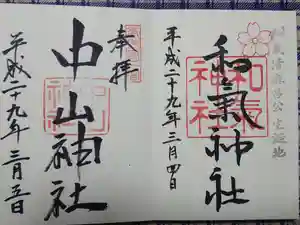 和気清麻呂公生誕地
和氣神社
和氣
神社
平成二十九年三月四日
奉拝
中山神社
平成二十九年三月五日